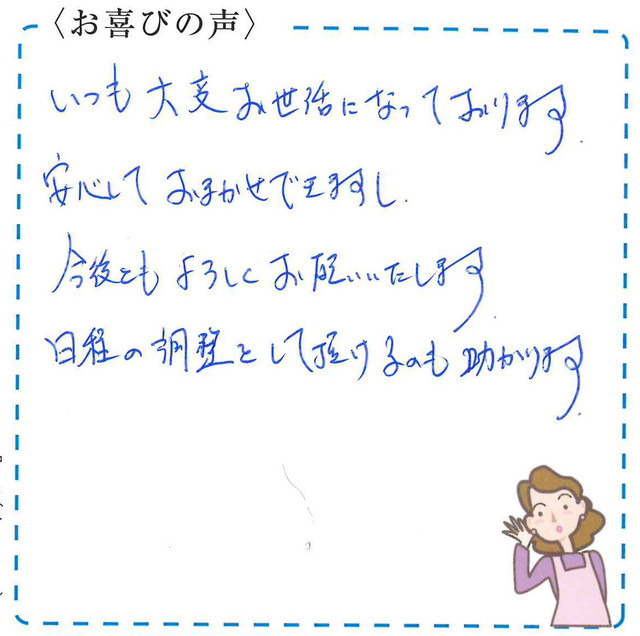 〈お喜びの声〉
いつも大変お世話になっております.
安心しておまかせできますし.
今後ともよろしくお願いいたします.
日程の調整をして頂けるのも助かります.